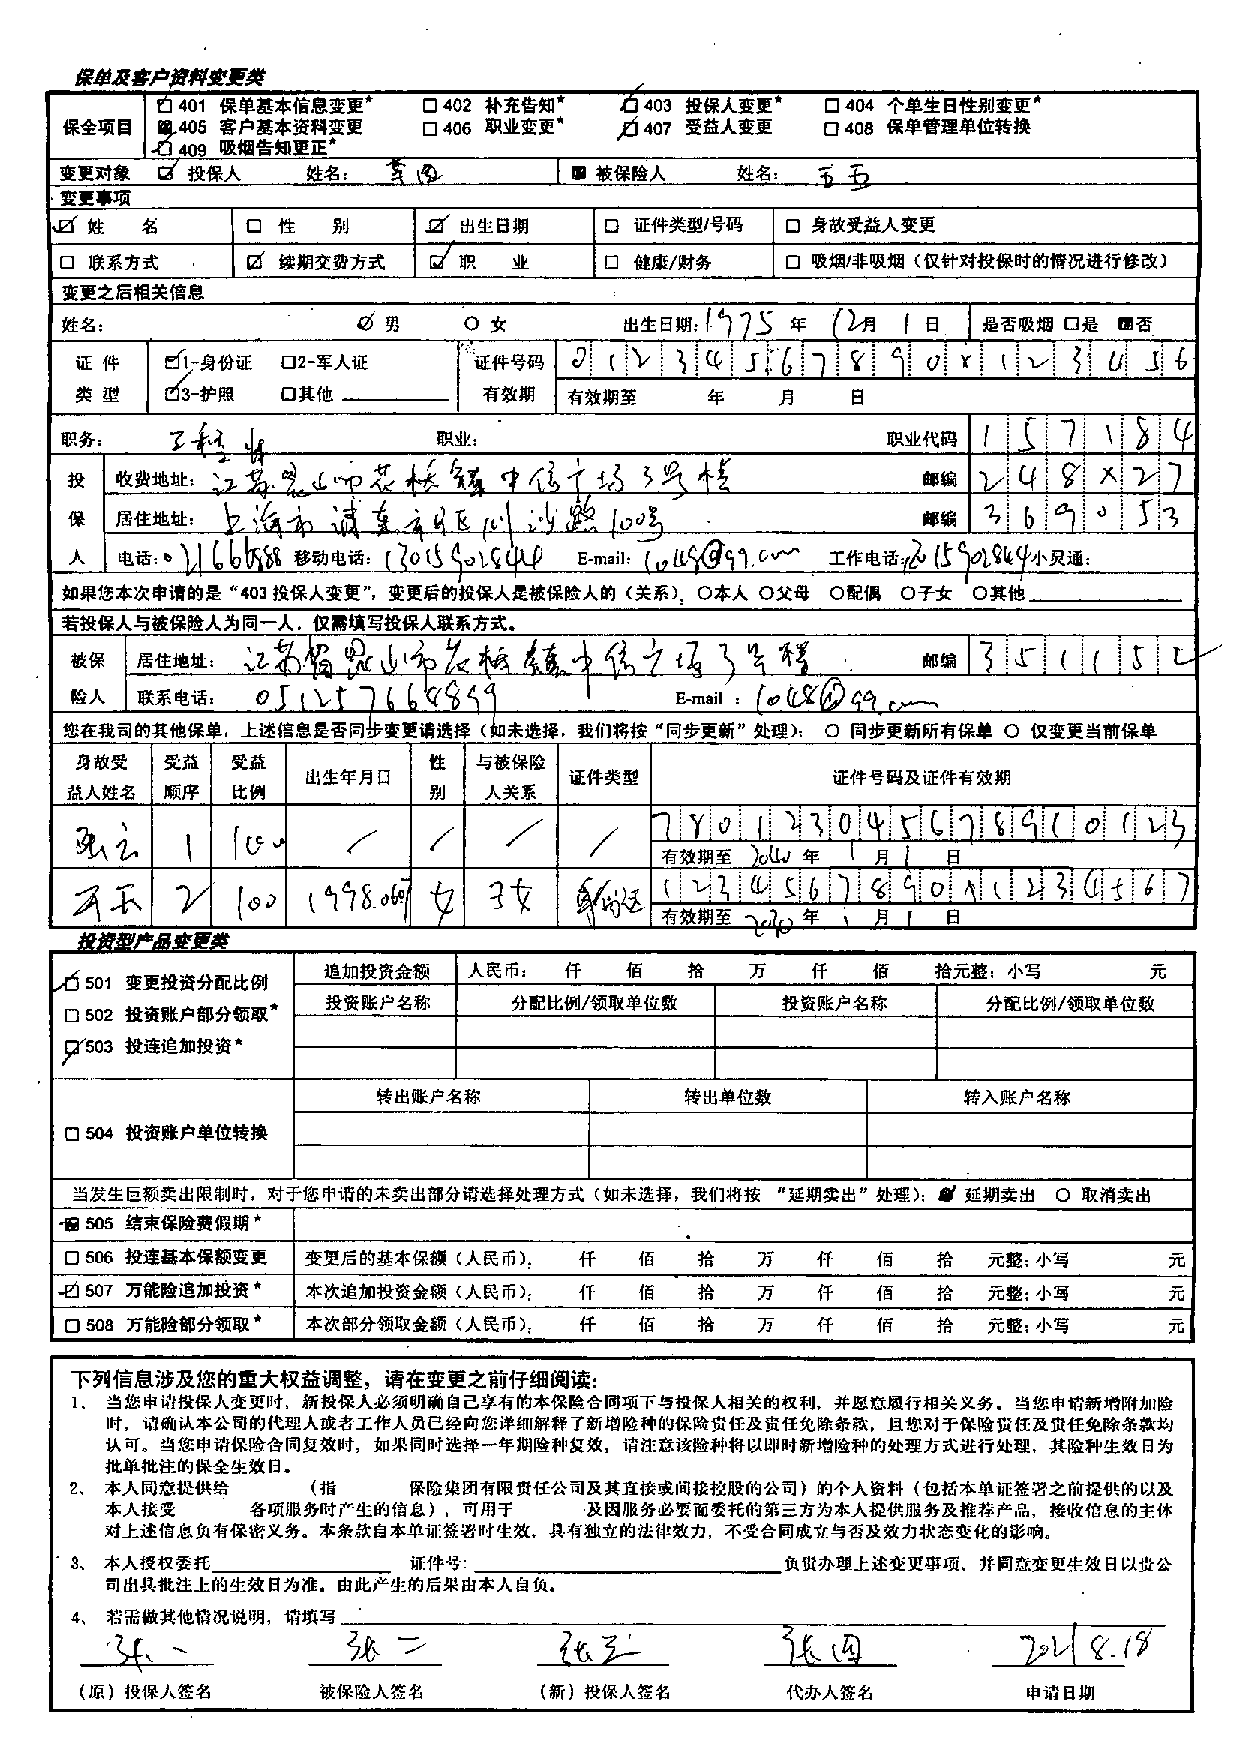 保单及客户资料变更类
保全项目
401 保单基本信息变更* 402 补充告知* 403 投保人变更* 404 个单生日性别变更*
405 客户基本资料变更 406 职业变更* 407 受益人变更 408 保单管理单位转换
409 吸烟告知更正*
变更对象 投保人 姓名: 李四 被保险人 姓名: 王五
变更事项
姓 名 性 别 出生日期 证件类型/号码 身故受益人变更
联系方式 续期交费方式 职 业 健康/财务 吸烟/非吸烟(仅针对投保时的情况进行修改)
变更之后相关信息
姓名: 男 女 出生日期:1975 年 12月 1 日 是否吸烟 是 否
证件类型 1-身份证 2-军人证 证件号码 01234567890x123456
3-护照 其他 有效期 有效期至 年 月 日
职务: 工程师 职业: 职业代码 157184
投保人 收费地址: 江苏昆山市花桥镇中信广场3号楼 邮编 248x27
居住地址: 上海市浦东新区川沙路100号 邮编 369053
电话: 移动电话:13015902844 E-mail:1048@99.com 工作电话: 小灵通:
如果您本次申请的是“403 投保人变更”,变更后的投保人是被保险人的(关系): 本人 父母 配偶 子女 其他
若投保人与被保险人为同一人,仅需填写投保人联系方式。
被保险人 居住地址: 江苏省昆山市花桥镇中信广场3号楼 邮编 351152
联系电话: 051257664899 E-mail : 1048@99.com
您在我司的其他保单,上述信息是否同步变更请选择(如未选择,我们将按“同步更新”处理): 同步更新所有保单 仅变更当前保单
身故受益人姓名 受益顺序 受益比例 出生年月日 性别 与被保险人关系 证件类型 证件号码及证件有效期
1 100 / / / / 780123045678910123
有效期至 2040 年 1 月 1 日
2 100 女 子女 身份证 1234567890x1234567
有效期至 2030 年 1 月 1 日
投资型产品变更类
501 变更投资分配比例 追加投资金额 人民币: 仟 佰 拾 万 仟 佰 拾元整;小写 元
502 投资账户部分领取* 投资账户名称 分配比例/领取单位数 投资账户名称 分配比例/领取单位数
503 投连追加投资*
504 投资账户单位转换 转出账户名称 转出单位数 转入账户名称
当发生巨额卖出限制时,对于您申请的未卖出部分请选择处理方式(如未选择,我们将按 “延期卖出”处理): 延期卖出 取消卖出
505 结束保险费假期*
506 投连基本保额变更 变更后的基本保额(人民币): 仟 佰 拾 万 仟 佰 拾 元整;小写 元
507 万能险追加投资* 本次追加投资金额(人民币): 仟 佰 拾 万 仟 佰 拾 元整;小写 元
508 万能险部分领取* 本次部分领取金额(人民币): 仟 佰 拾 万 仟 佰 拾 元整;小写 元
下列信息涉及您的重大权益调整,请在变更之前仔细阅读:
1、 当您申请投保人变更时,新投保人必须明确自己享有的本保险合同项下与投保人相关的权利,并愿意履行相关义务。当您申请新增附加险
时,请确认本公司的代理人或者工作人员已经向您详细解释了新增险种的保险责任及责任免除条款,且您对于保险责任及责任免除条款均
认可。当您申请保险合同复效时,如果同时选择一年期险种复效,请注意该险种将以即时新增险种的处理方式进行处理,其险种生效日为
批单批注的保全生效日。
2、 本人同意提供给 (指 保险集团有限责任公司及其直接或间接控股的公司)的个人资料(包括本单证签署之前提供的以及
本人接受 各项服务时产生的信息),可用于 及因服务必要而委托的第三方为本人提供服务及推荐产品,接收信息的主体
对上述信息负有保密义务。本条款自本单证签署时生效,具有独立的法律效力,不受合同成立与否及效力状态变化的影响。
3、 本人授权委托 证件号: 负责办理上述变更事项,并同意变更生效日以贵公
司出具批注上的生效日为准。由此产生的后果由本人自负。
4、 若需做其他情况说明,请填写
张一 张二 张三 张四 2021 8.18
(原)投保人签名 被保险人签名 (新)投保人签名 代办人签名 申请日期